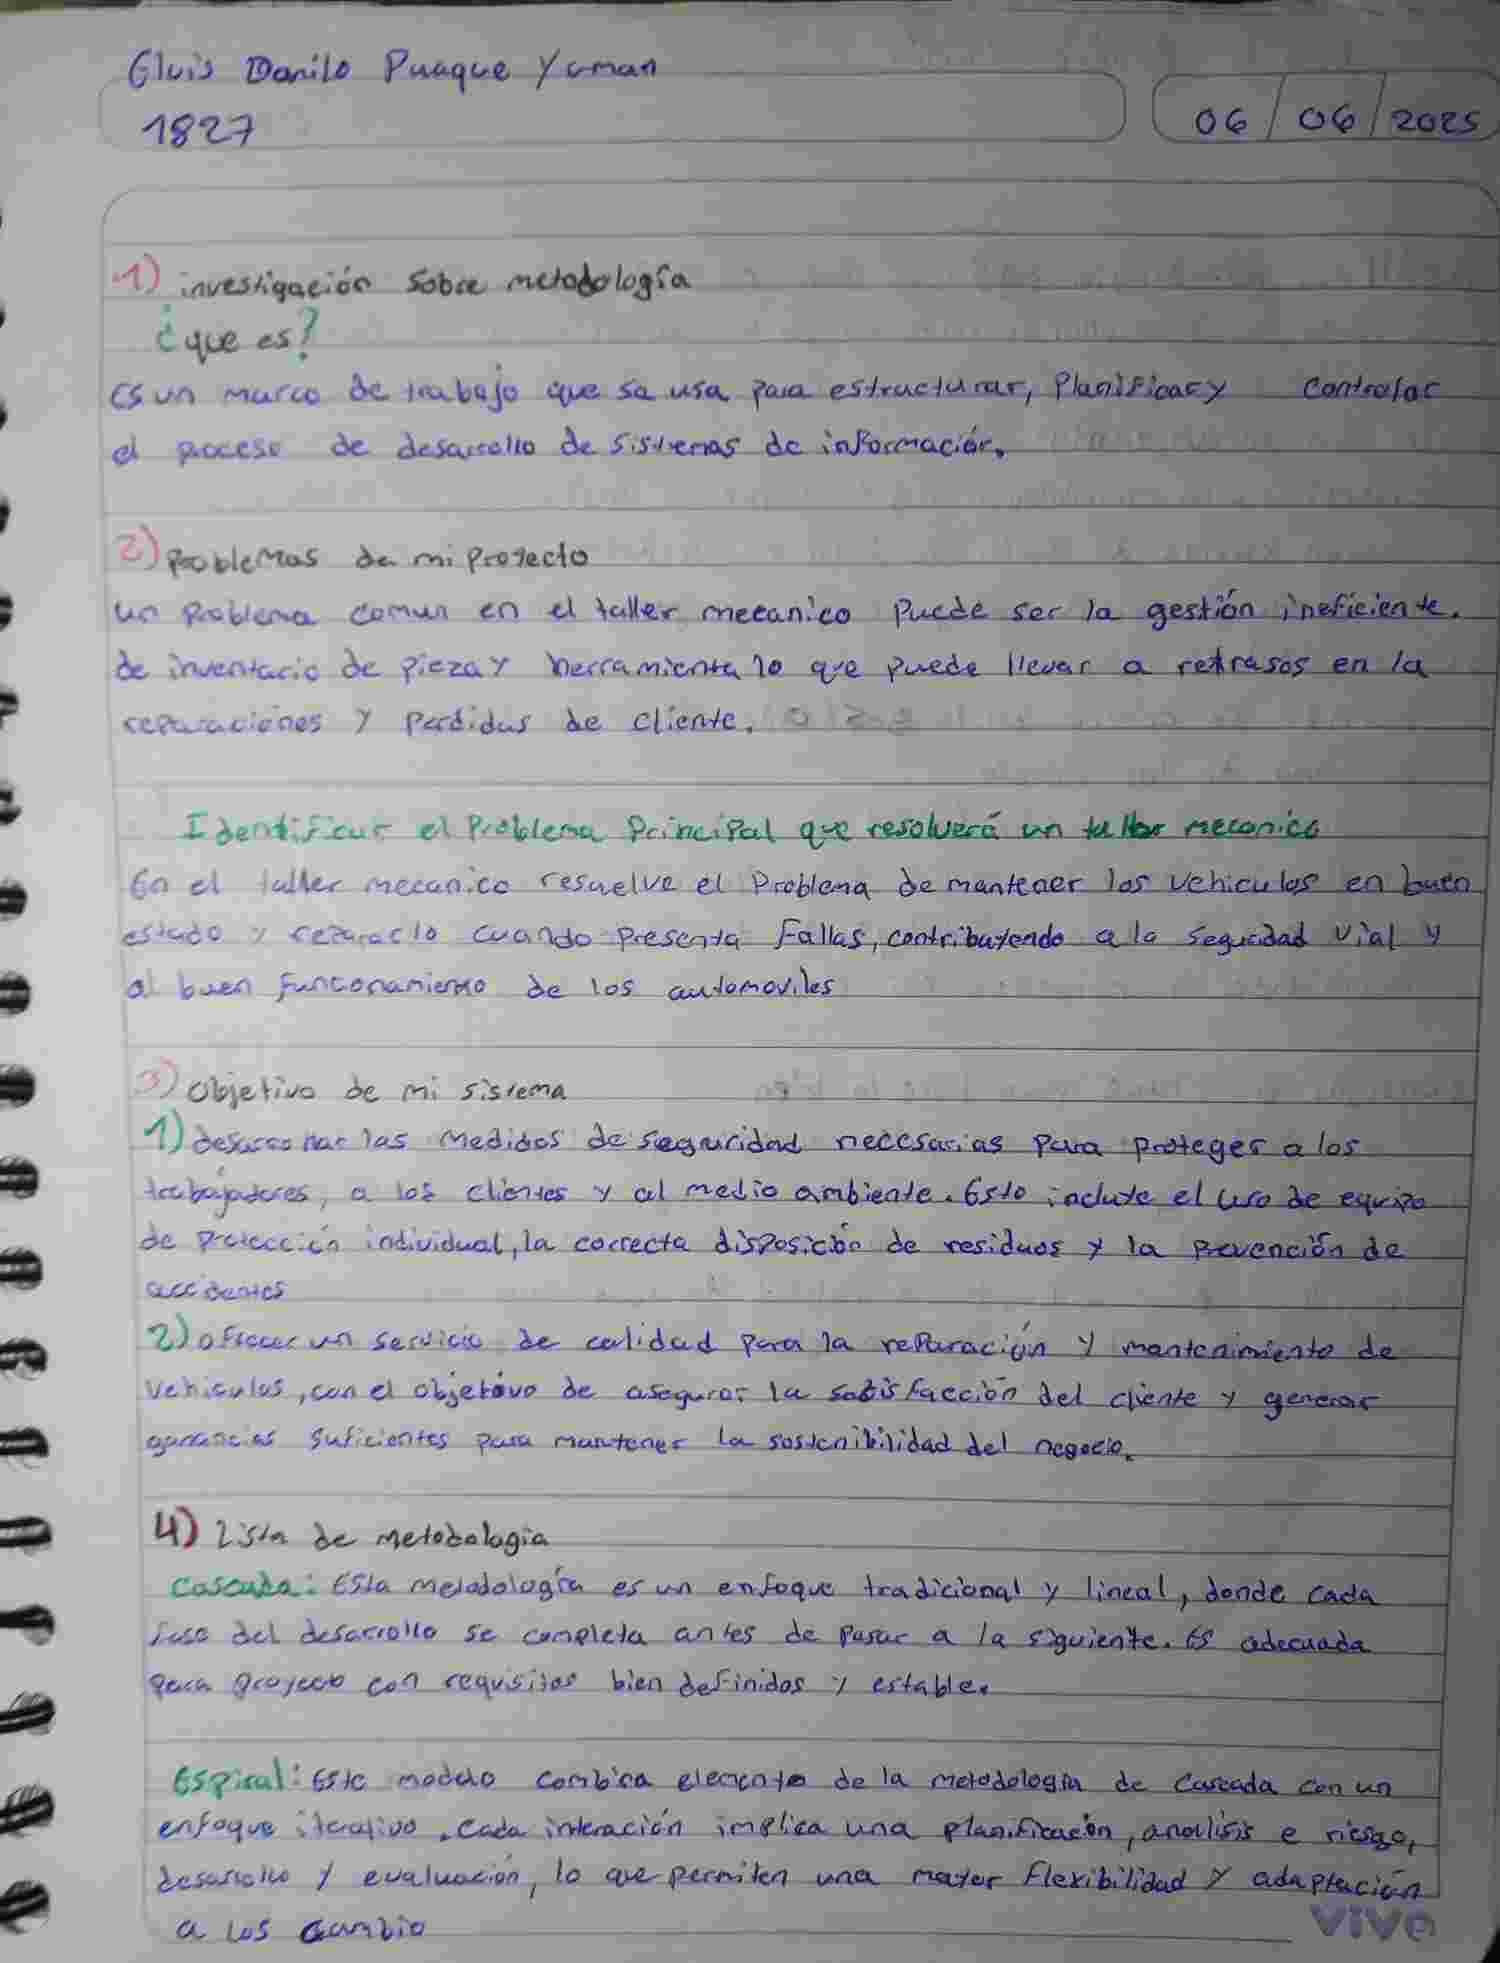 Gluis Danilo Puaque Yaman
1827
06/06/2025
1) investigación sobre metodología
¿que es?
Es un marco de trabajo que sa usa para estructurar, Planificar y controlar
el proceso de desarrollo de sistemas de información.
2) Problemas de mi proyecto
un Problema comun en el taller mecanico Puede ser la gestión ineficiente.
de inventario de pieza y herramienta lo que puede llevar a retrasos en la
reparaciones y perdidas de cliente.
Identificar el Problema Principal que resolverá un taller mecanico
En el taller mecanico resuelve el Problema de mantener los vehiculos en buen
estado y repararlo cuando presenta Fallas, contribuyendo a la seguridad vial y
al buen funconamiento de los automoviles
3) Objetivo de mi sistema
1) desarrollar las medidas de seguridad necesarias para proteger a los
trabajadores, a los clientes y al medio ambiente. Esto incluye el uso de equipo
de protección individual, la correcta disposición de residuos y la prevención de
accidentes
2) ofrecer un servicio de calidad para la reparación y mantenimiento de
vehiculos, con el objetivo de asegurar la satisfacción del cliente y generar
ganancias suficientes para mantener la sostenibilidad del negocio.
4) Lista de metodologia
Cascada: Esta metodología es un enfoque tradicional y lineal, donde cada
fase del desarrollo se completa antes de pasar a la siguiente. Es adecuada
para proyecto con requisitos bien definidos y estable.
Espiral: Este modelo combina elemento de la metodologia de Cascada con un
enfoque iterativo. Cada interación implica una planificación, analisis e riesgo,
desarrollo y evaluación, lo que permiten una mayor flexibilidad y adaptación
a los cambio
vive